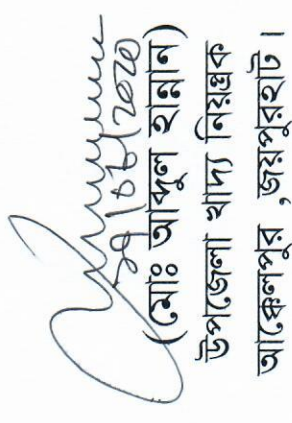 (মোঃ আব্দুল হান্নান)
উপজেলা খাদ্য নিয়ন্ত্রক
আক্কেলপুর ,জয়পুরহাট।